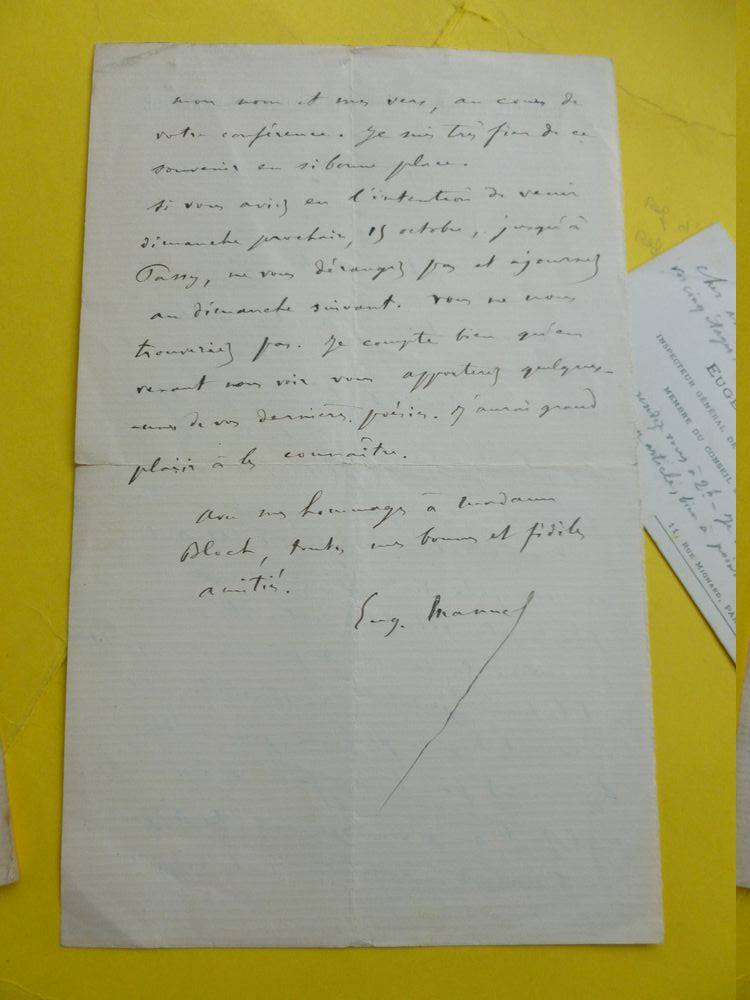 mon nom et mes vers, au cours de
votre conférence. Je suis très fier de ce
souvenir en si bonne place.
Si vous aviez eu l'intention de venir
dimanche prochain, 15 octobre, jusqu'à
Passy, ne vous dérangez pas et ajournez
au dimanche suivant. Vous ne nous
trouveriez pas. Je compte bien qu'en
venant nous voir vous apporterez quelques-
-unes de vos dernières poésies. J'aurai grand
plaisir à les connaître.
Avec mes hommages à Madame
Bloch, toutes mes bonnes et fidèles
amitiés.
Eug. Manuel
Cher
vos cinq étages
EUGE
INSPECTEUR GÉNÉRAL DE
MEMBRE DU CONSEIL
rendez vous à 2h
articles, bien à
11, RUE MIGNARD, PA